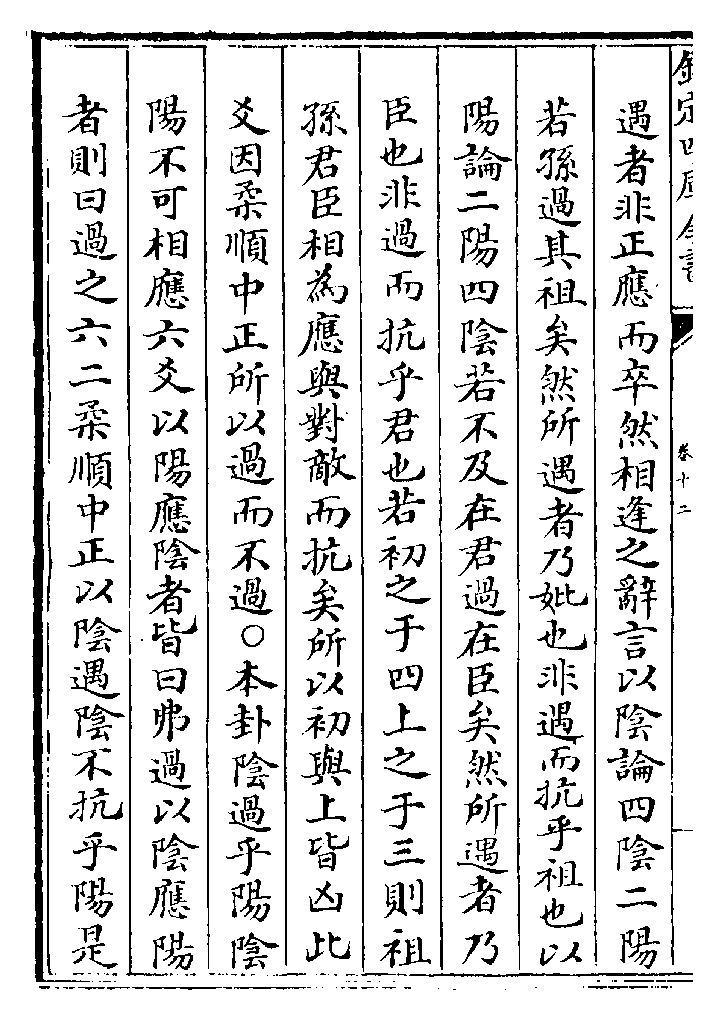 欽定四庫全書
卷十二
遇者非正應而卒然相逢之辭言以陰論四陰二陽
若孫過其祖矣然所遇者乃妣也非遇而抗乎祖也以
陽論二陽四陰若不及在君過在臣矣然所遇者乃
臣也非過而抗乎君也若初之于四上之于三則祖
孫君臣相為應與對敵而抗矣所以初與上皆凶此
爻因柔順中正所以過而不過○本卦陰過乎陽陰
陽不可相應六爻以陽應陰者皆曰弗過以陰應陽
者則曰過之六二柔順中正以陰遇陰不抗乎陽是